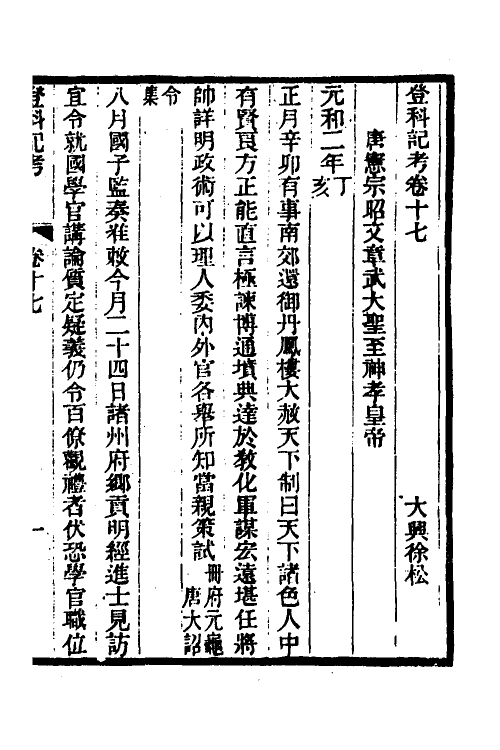 登科記考卷十七
大興徐松
唐憲宗昭文章武大聖至神孝皇帝
元和二年丁亥
正月辛卯有事南郊還御丹鳳樓大赦天下制曰天下諸色人中
有賢良方正能直言極諫博通墳典達於教化軍謀宏遠堪任將
帥詳明政術可以理人委內外官各舉所知當親策試冊府元龜唐大詔
令集
八月國子監奏准敕今月二十四日諸州府鄉貢明經進士見訪
宜令就國學官講論質定疑義仍令百僚觀禮者伏恐學官職位
登科記考
卷十七
一